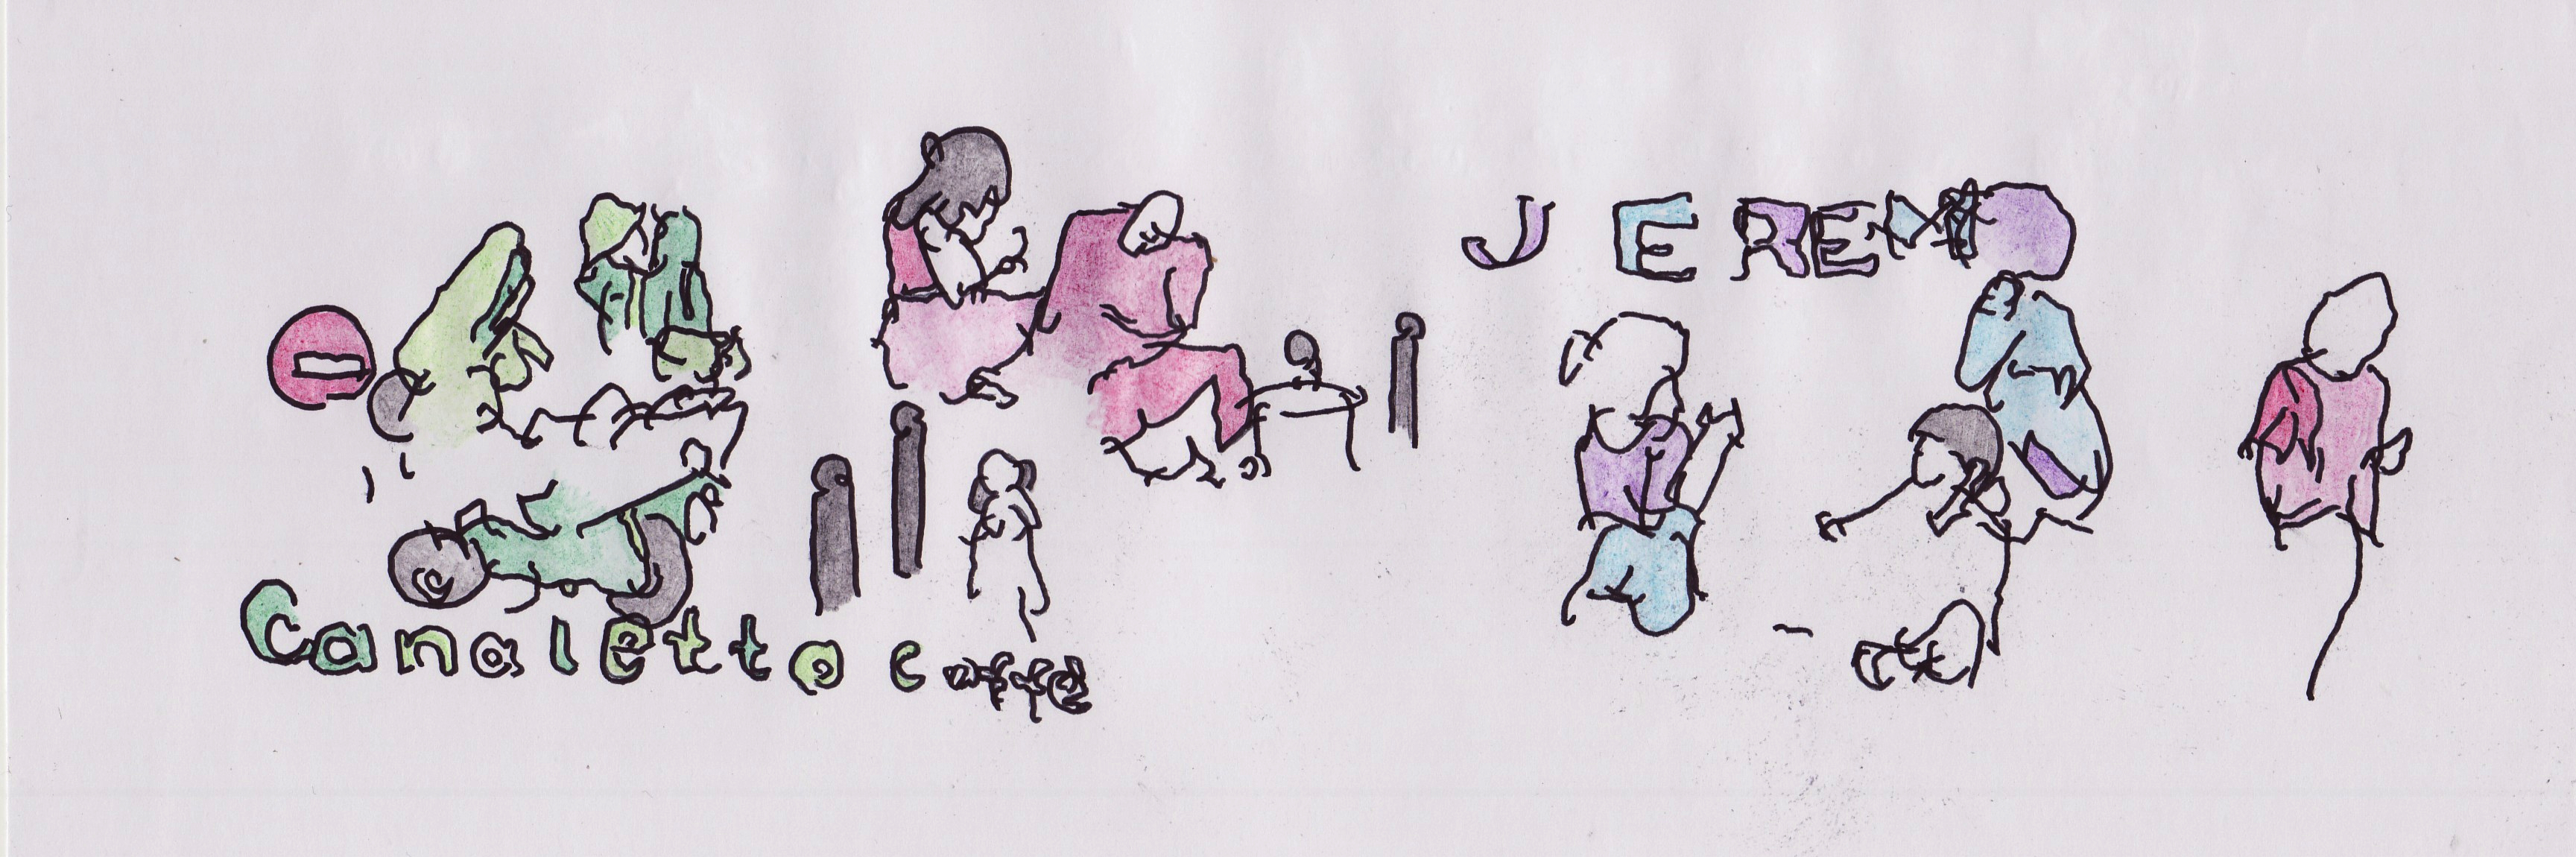 JEREMY
Canaletto caffe